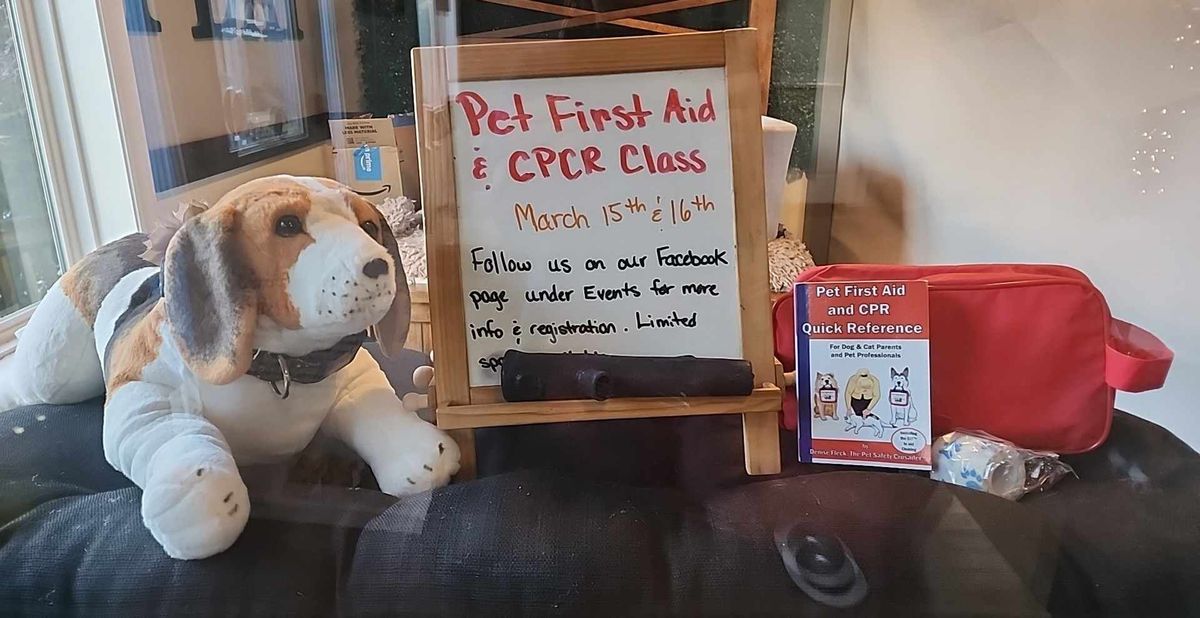 Pet First Aid
& CPCR Class
March 15th & 16th
Follow us on our Facebook
page under Events for more
info & registration. Limited
MADE WITH
LESS MATERIAL
prime
Pet First Aid
and CPR
Quick Reference
For Dog & Cat Parents
and Pet Professionals
by
Denise Fleck The Pet Safety Crusader